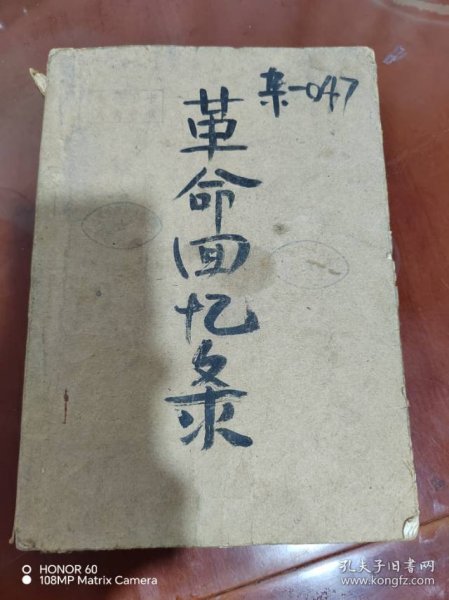 杂-047
革命回忆录
HONOR 60
108MP Matrix Camera
孔夫子旧书网
www.kongfz.com